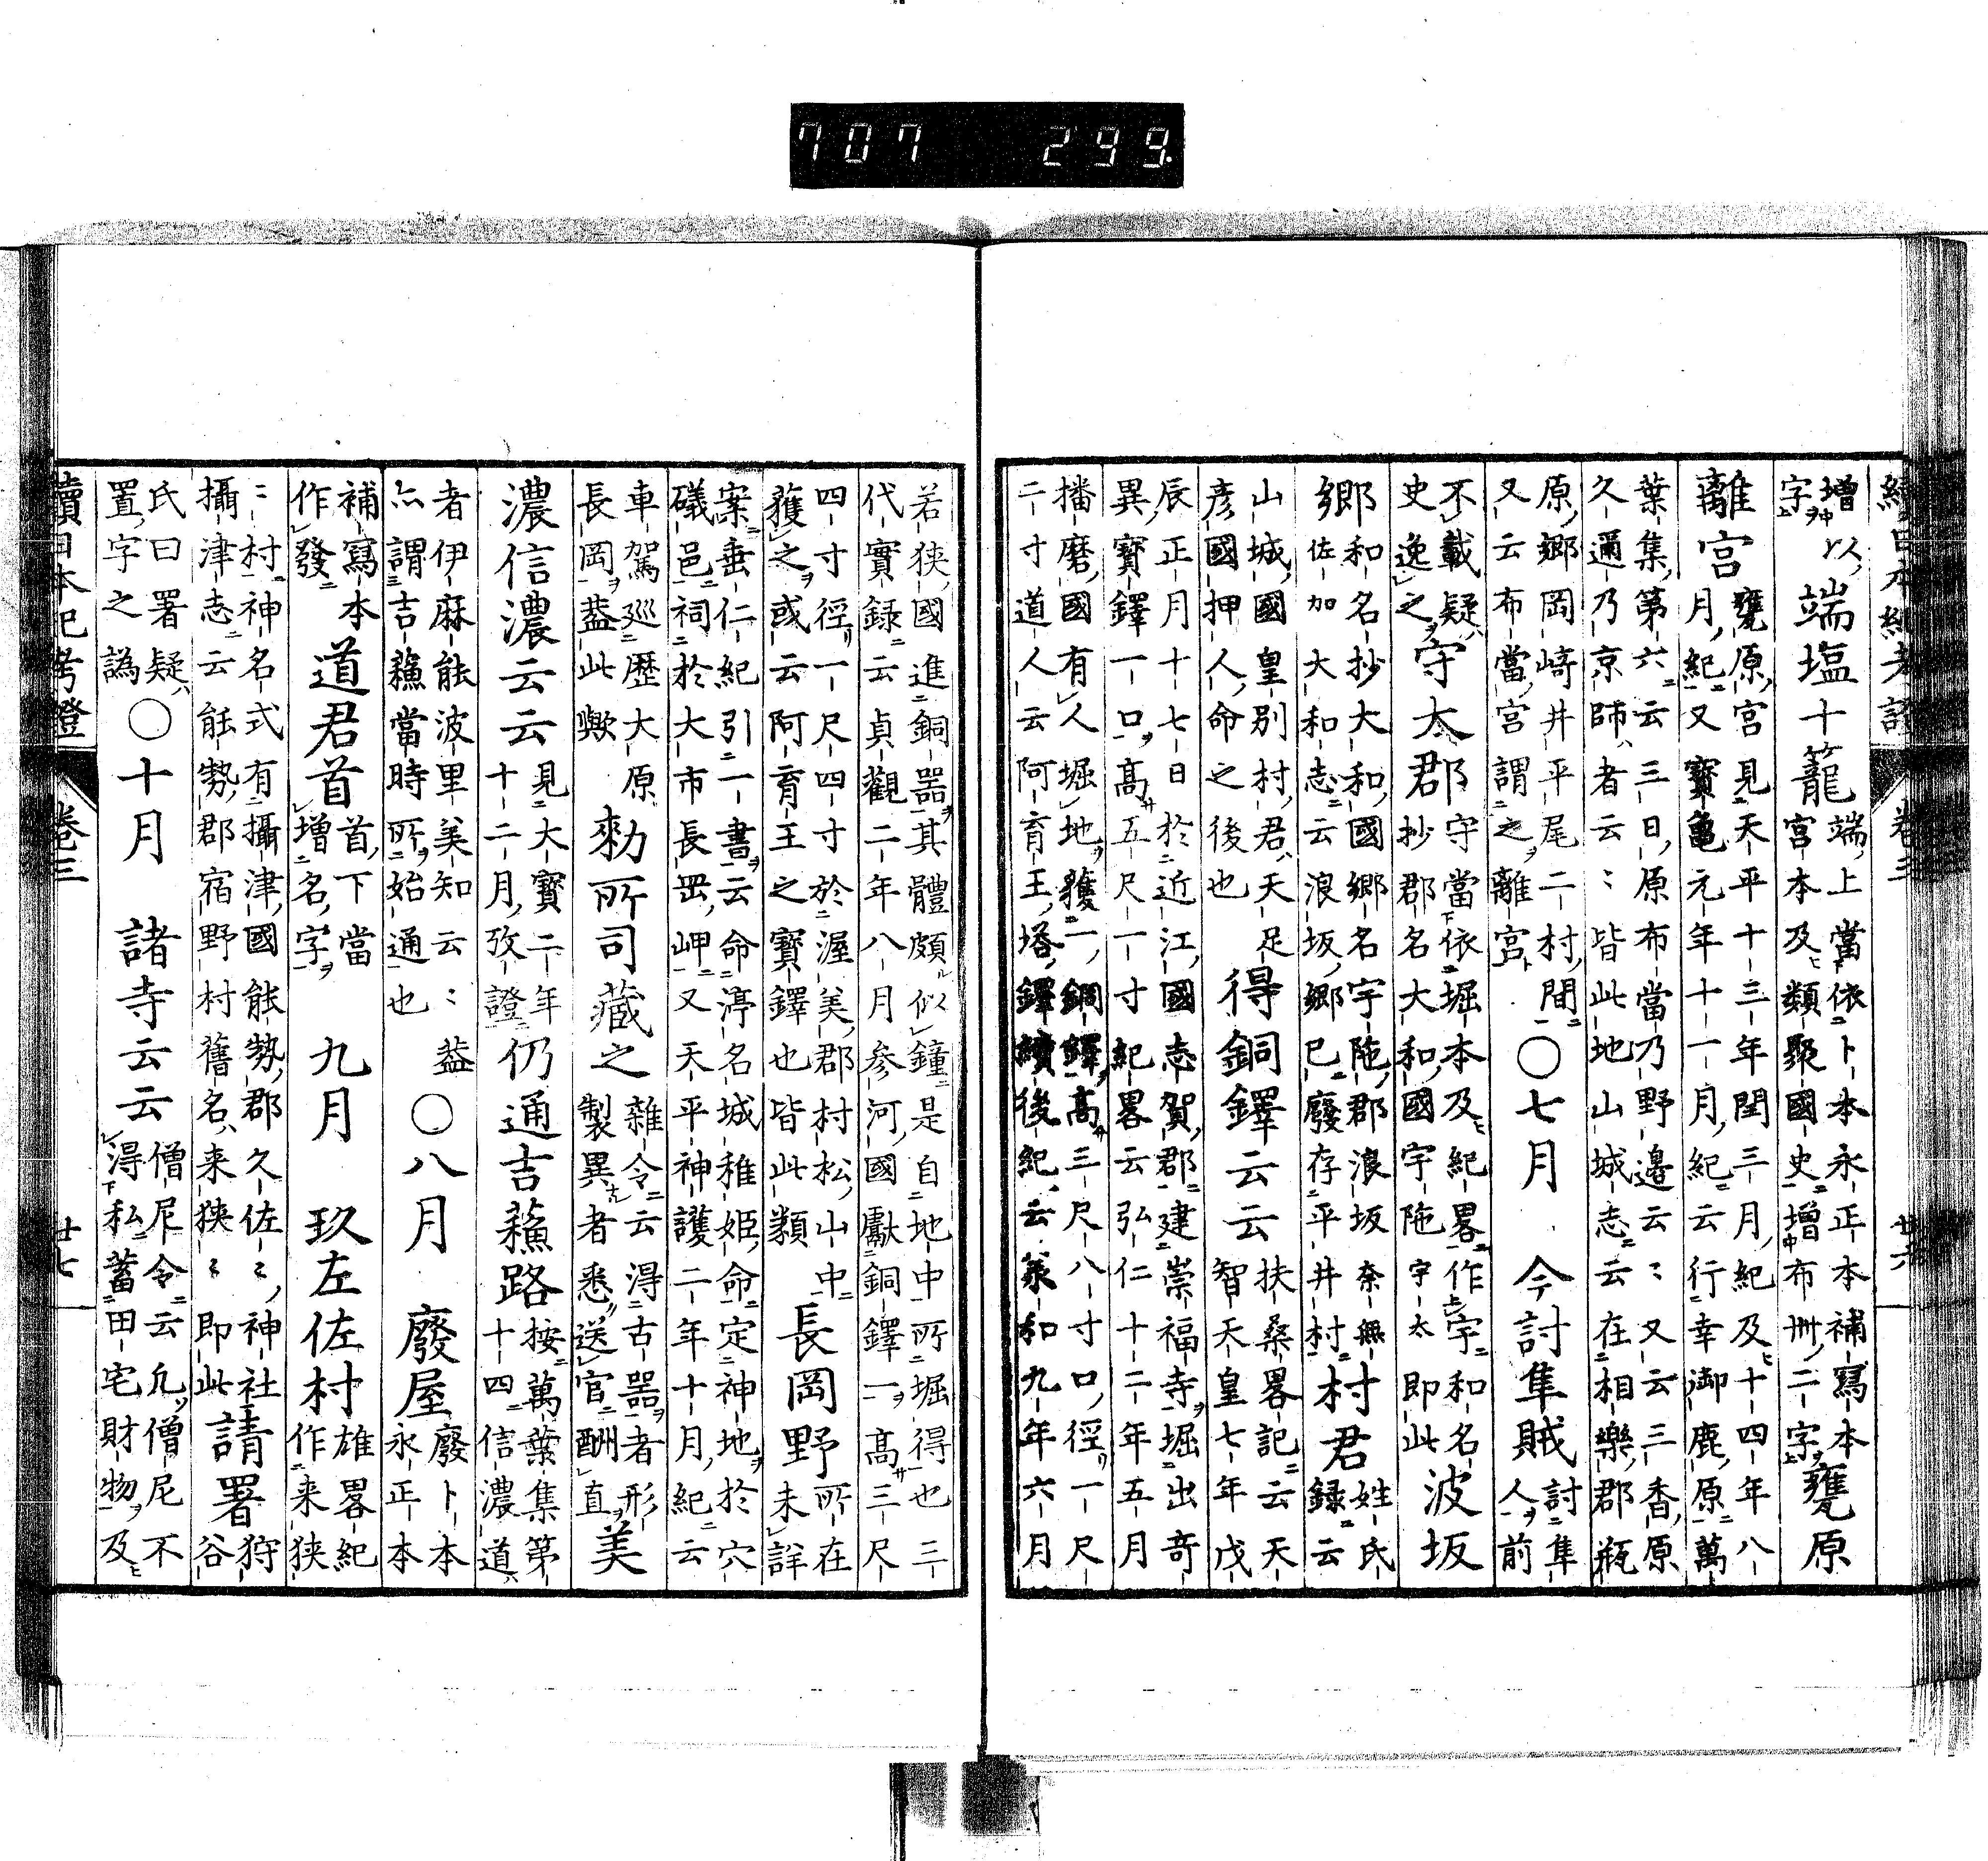 707 299.
續日本紀考證 卷三 廿六
增以端塩十籠端上當依卜本永正本補寫本
字宮本及類聚國史增布卌二字甕原
離宮甕原宮見天平十三年閏三月紀及十四年八
月紀又寶龜元年十一月紀云行幸御鹿原萬
葉集第六云三日原布當乃野邊云〻又云三香原
久邇乃京師者云〻皆此地山城志云在相樂郡瓶
原鄉岡崎井平尾二村間〇七月今討隼賊討隼
又云布當宮謂之離宮人前
不載疑守太郡守當依堀本及紀畧作宇和名波坂
史逸之抄郡名大和國宇陁宇太即此
鄉和名抄大和國鄉名宇陁郡浪坂奈無村君姓氏
佐加大和志云浪坂鄉已廢存平井村錄云
山城國皇別村君天足得銅鐸云云扶桑畧記云天
彥國押人命之後也智天皇七年戊
辰正月十七日於近江國志賀郡建崇福寺堀出奇
異寶鐸一口高五尺一寸紀畧云弘仁十二年五月
播磨國有人堀地獲一銅鐸高三尺八寸口徑一尺
二寸道人云阿育王塔鐸續後紀云承和九年六月
若狹國進銅器其體頗似鐘是自地中所堀得也三
代實錄云貞觀二年八月參河國獻銅鐸一高三尺
四寸徑一尺四寸於渥美郡村松山中長岡野所在
獲之或云阿育王之寶鐸也皆此類未詳
案垂仁紀引一書云命渟名城稚姬命定神地於穴
礒邑祠於大市長岡岬又天平神護二年十月紀云
車駕巡歷大原勑所司藏之雜令云得古器者形美
長岡蓋此歟製異者悉送官酬直
濃信濃云云見大寶二年仍通吉蘓路按萬葉集第
十二月攷證十四信濃道
者伊麻能波里美知云〻蓋〇八月廢屋廢卜本
亦謂吉蘓當時所始通也永正本
補寫本道君首首下當九月玖左佐村雄畧紀
作發增名字作来狹
〻村神名式有攝津國能勢郡久佐〻神社請署狩
攝津志云能勢郡宿野村舊名来狹〻即此谷
氏曰署疑〇十月諸寺云云僧尼令云凡僧尼不
置字之譌得私蓄田宅財物及
續日本紀考證 卷三 廿七